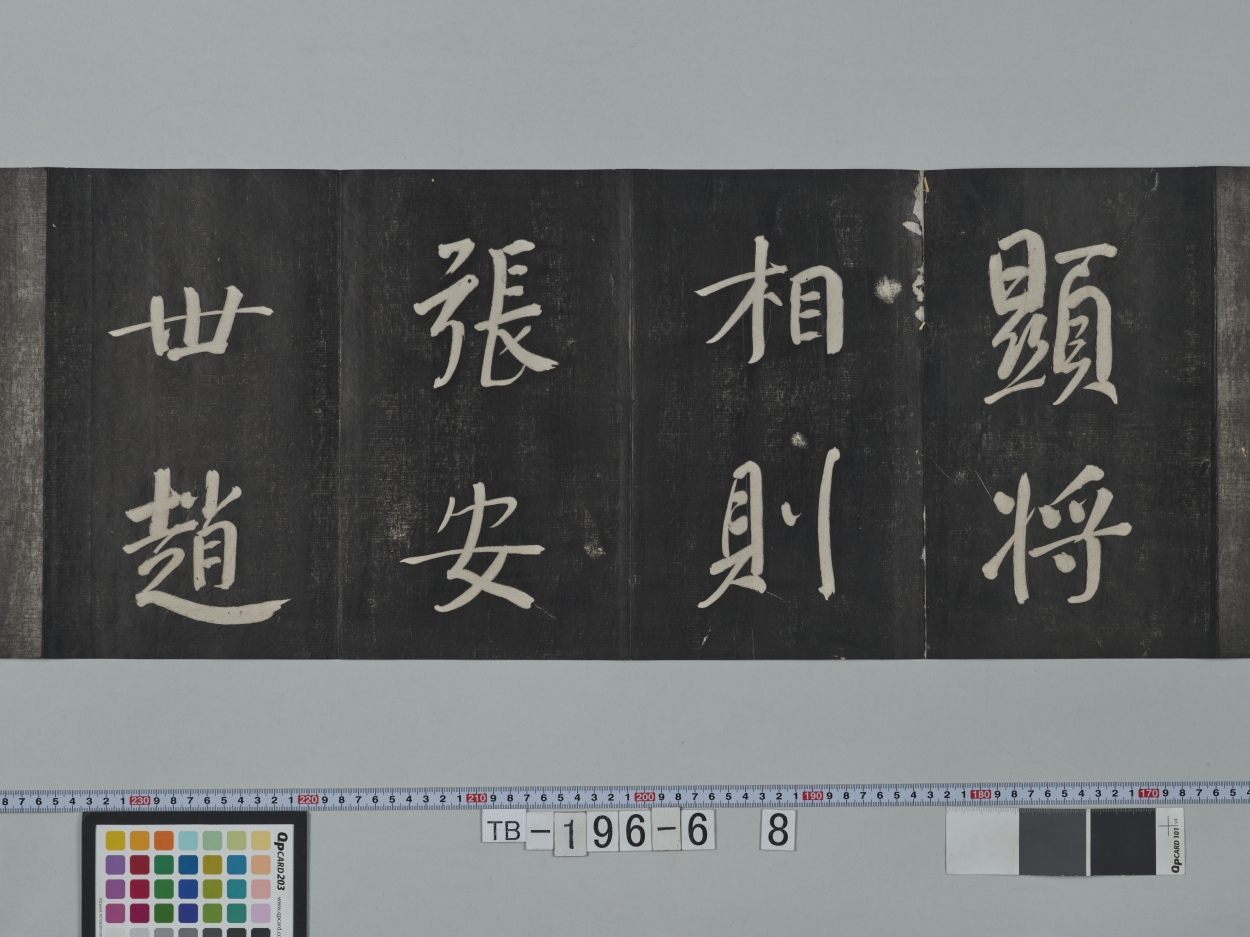 顕将
相則
張安
丗趙
8 7 6 5 4 3 2 1 230 9 8 7 6 5 4 3 2 1 220 9 8 7 6 5 4 3 2 1 210 9 8 7 6 5 4 3 2 1 200 9 8 7 6 5 4 3 2 1 190 9 8 7 6 5 4 3 2 1 180 9 8 7 6 5 4 3 2 1 170 9 8 7 6 5 4
TB-196-6 8
QPCARD 203
QPCARD 101